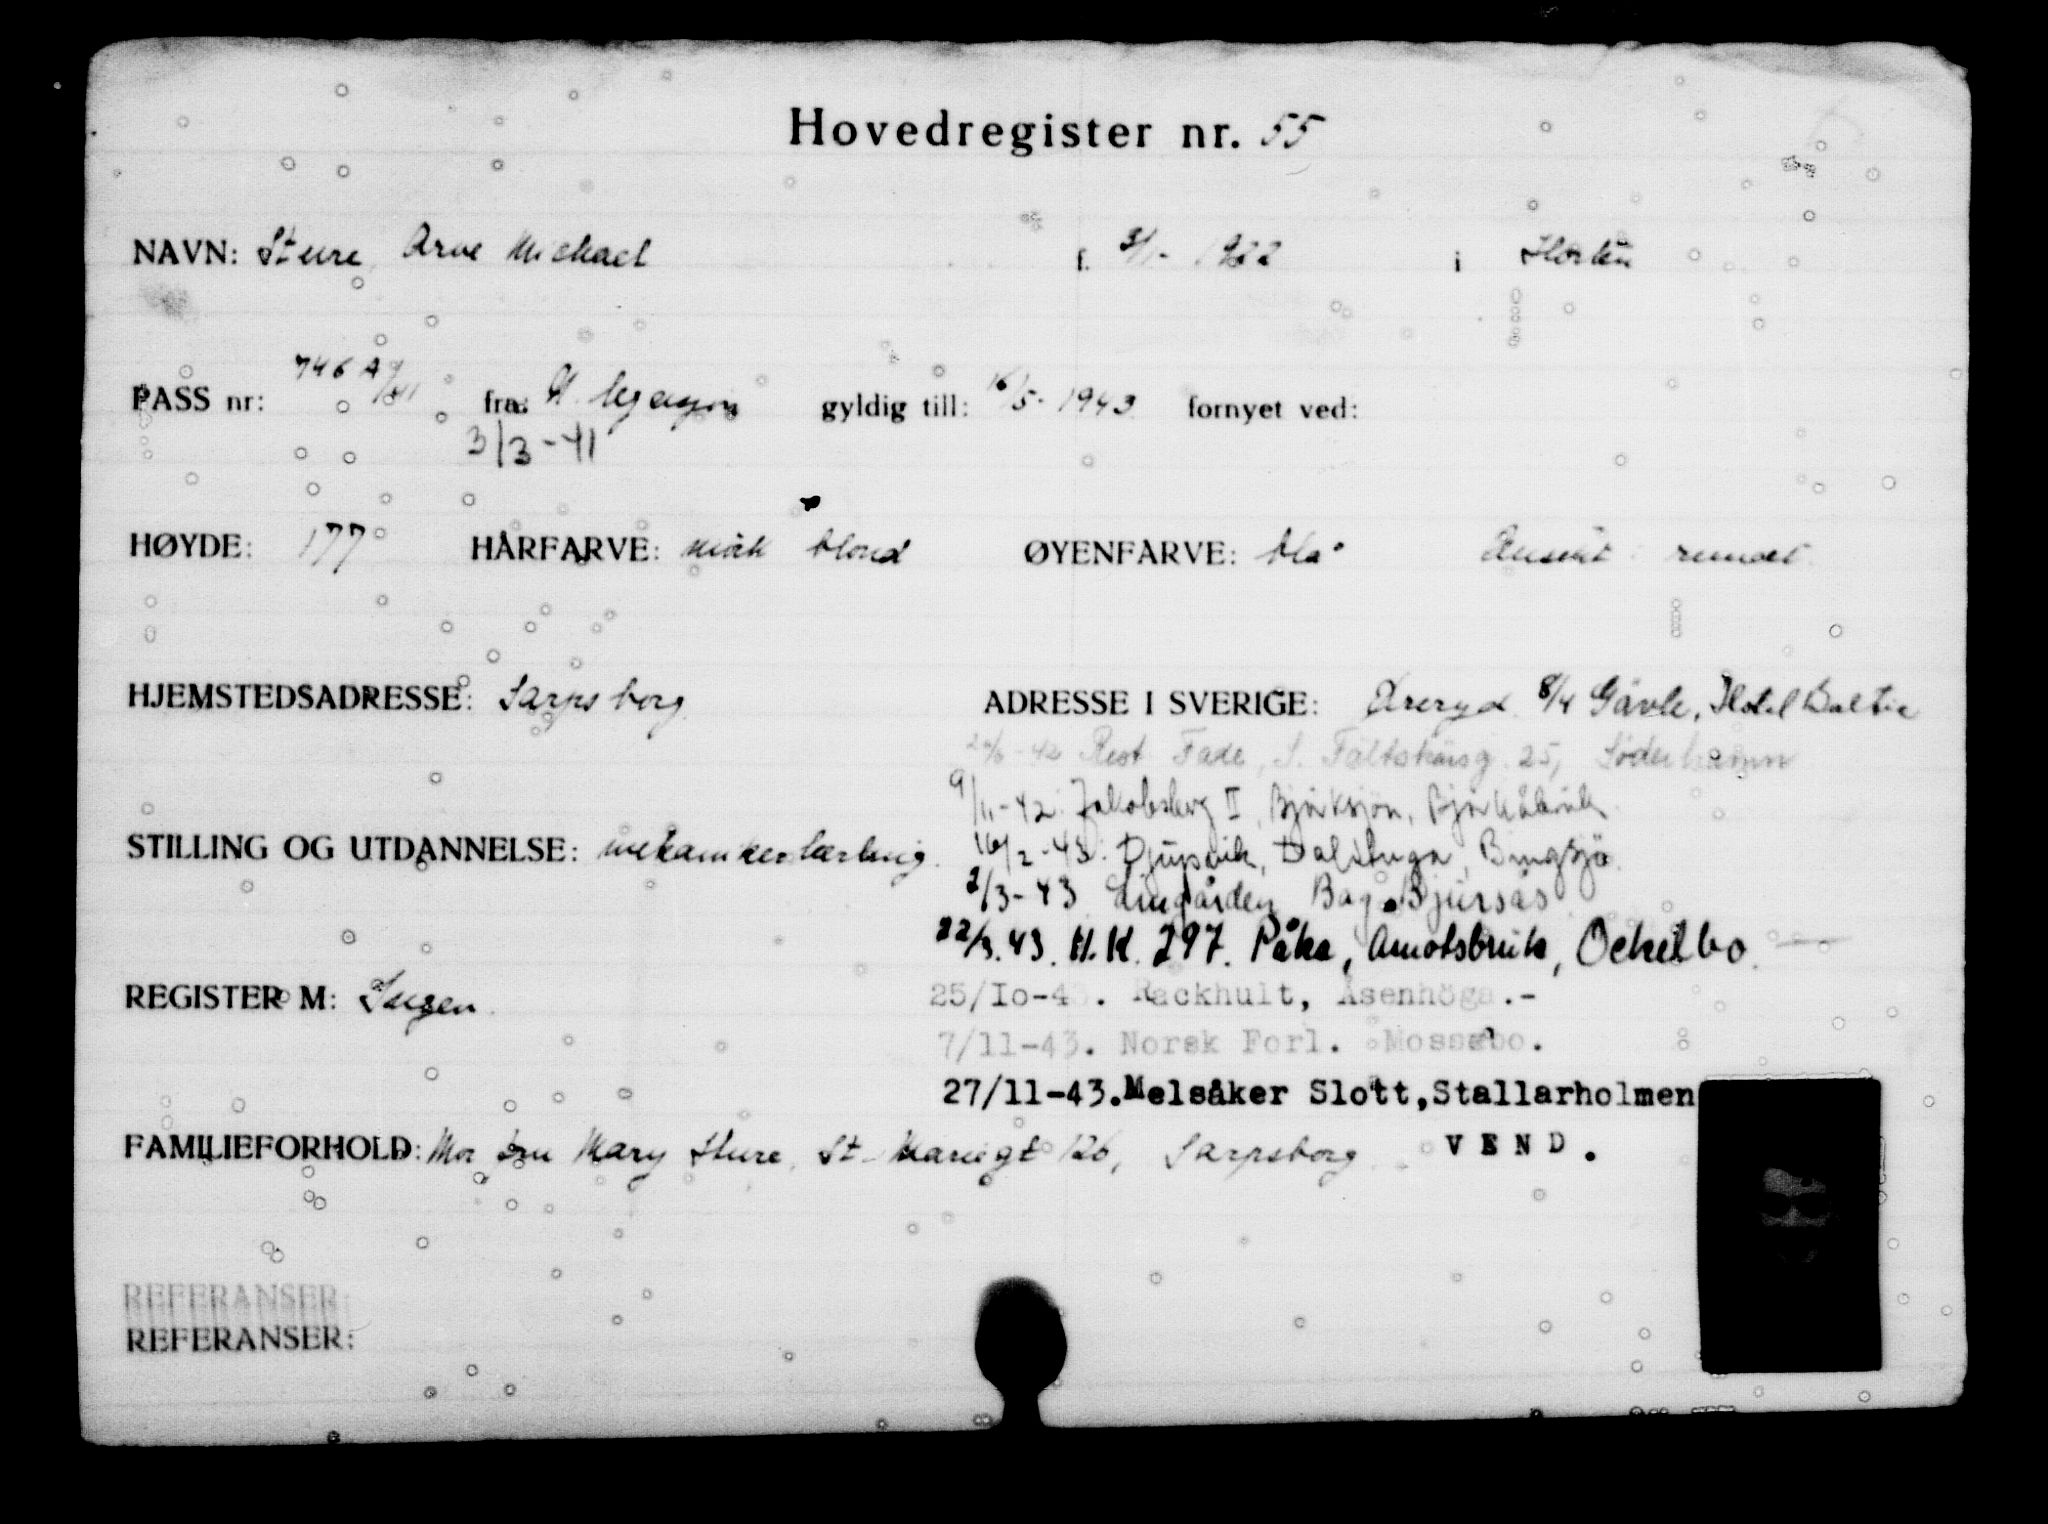 Hovedregister nr. 55
NAVN: Sture, Arve Michael f. 3/1- 1922 i Horten
PASS nr: 746 A9/41 fra: St. legasjon gyldig till: 16/5- 1943 fornyet ved:
3/3-41
HØYDE: 177 HÅRFARVE: mørk blond ØYENFARVE: blå Ansikt: rundt
HJEMSTEDSADRESSE: Sarpsborg. ADRESSE I SVERIGE: Øreryd. 8/4 Gävle, Hotel Baltic
-42 Rest. Fade, S. Fältskärsg. 25, Söderhamn
9/11-42. Jakobsberg II, Björksjön, Björkåbruk
STILLING OG UTDANNELSE: mekanikerlærling. 16/2-43. Djupvik, Dalstuga, Bingsjö.
2/3-43 Lingården Bag. Bjursås.
22/3.43. H.K. 297. Påka, Åmotsbruk, Ockelbo.
REGISTER M: Ingen. 25/Io-43. Rackhult, Åsenhöga.-
7/11-43. Norsk Forl. Mossebo.
27/11-43.Melsåker Slott,Stallarholmen
FAMILIEFORHOLD: Mor fru Mary Sture, St. Mariegt 126, Sarpsborg. VEND.
REFERANSER:
REFERANSER: